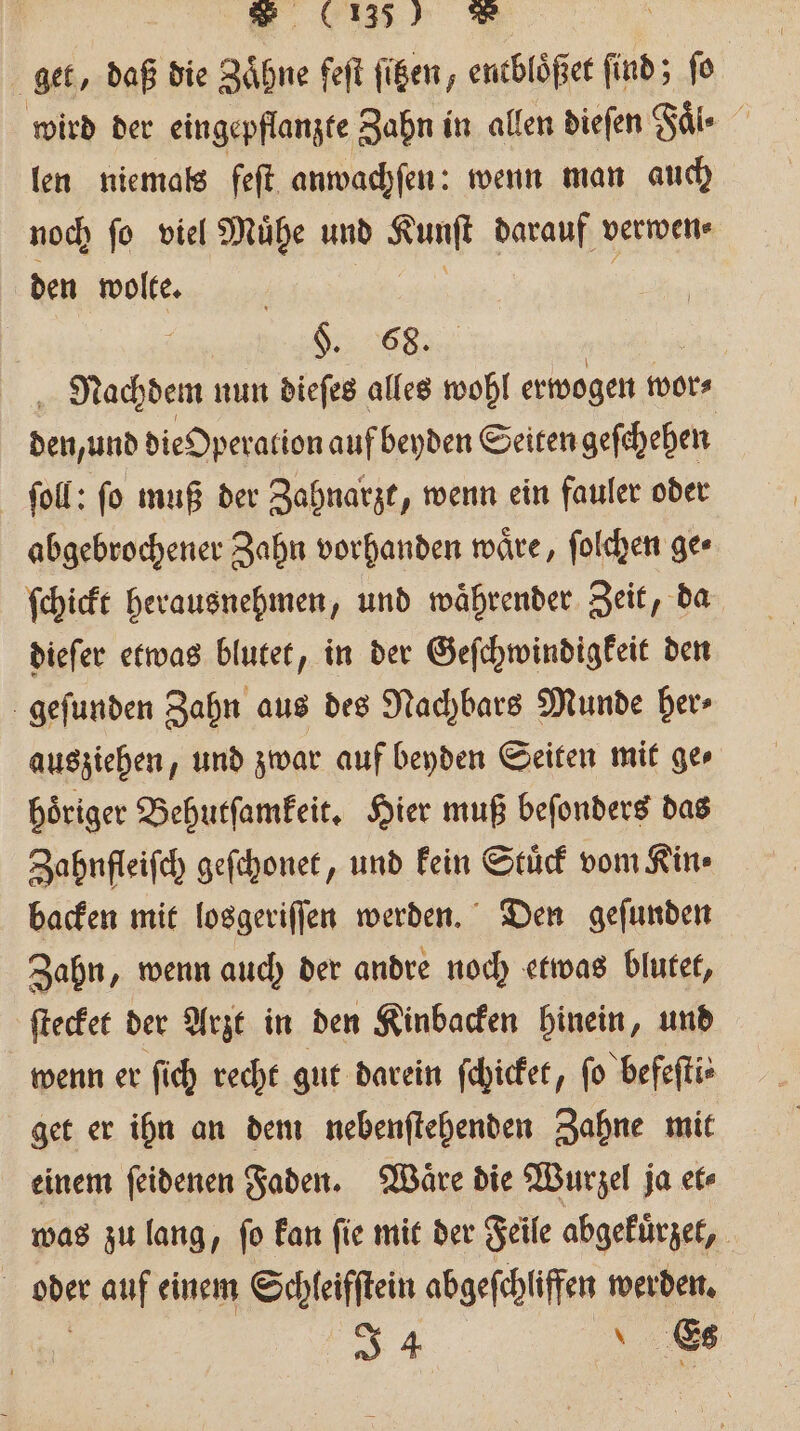 ❧ ( 135 ) ❧
get, daß die Zaͤhne feſt ſitzen, entbloͤßet ſind; ſo
wird der eingepflanzte Zahn in allen dieſen Faͤl⸗
len niemals feſt anwachſen: wenn man auch
noch ſo viel Muͤhe und Kunſt darauf verwen⸗
den wolte.
§. 68.
Nachdem nun dieſes alles wohl erwogen wor⸗
den, und die Operation auf beyden Seiten geſchehen
ſoll: ſo muß der Zahnarzt, wenn ein fauler oder
abgebrochener Zahn vorhanden waͤre, ſolchen ge⸗
ſchickt herausnehmen, und waͤhrender Zeit, da
dieſer etwas blutet, in der Geſchwindigkeit den
geſunden Zahn aus des Nachbars Munde her⸗
ausziehen, und zwar auf beyden Seiten mit ge⸗
hoͤriger Behutſamkeit. Hier muß beſonders das
Zahnfleiſch geſchonet, und kein Stuͤck vom Kin⸗
backen mit losgeriſſen werden. Den geſunden
Zahn, wenn auch der andre noch etwas blutet,
ſtecket der Arzt in den Kinbacken hinein, und
wenn er ſich recht gut darein ſchicket, ſo befeſti⸗
get er ihn an dem nebenſtehenden Zahne mit
einem ſeidenen Faden. Waͤre die Wurzel ja et⸗
was zu lang, ſo kan ſie mit der Feile abgekuͤrzet,
oder auf einem Schleifſtein abgeſchliffen werden.
J 4 Es